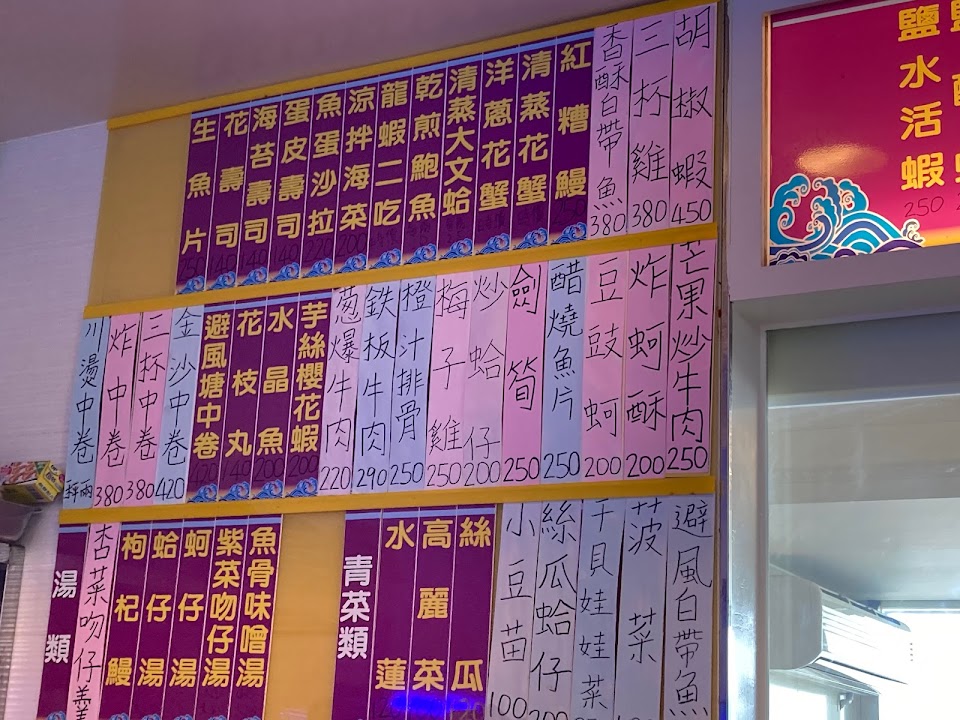 胡椒蝦 450
三杯雞 380
香酥白帶魚 380
紅糟鰻 250
清蒸花蟹
洋蔥花蟹
清蒸大文蛤
乾煎鮑魚
龍蝦二吃
涼拌海菜 200
魚蛋沙拉 220
蛋皮壽司 140
海苔壽司 140
花壽司 140
生魚片 250
芒果炒牛肉 250
炸蚵酥 200
豆豉蚵 200
醋燒魚片 250
劍筍 250
炒蛤仔 200
梅子雞 250
橙汁排骨 250
鉄板牛肉 290
葱爆牛肉 220
芋絲櫻花蝦 200
水晶魚 200
花枝丸 140
避風塘中卷 420
金沙中卷 420
三杯中卷 380
炸中卷 380
川燙中卷
避風白帶魚
菠菜
干貝娃娃菜
絲瓜蛤仔 200
小豆苗 100
絲瓜
高麗菜
水蓮
青菜類
魚骨味噌湯
紫菜吻仔湯
蚵仔湯
蛤仔湯
枸杞鰻
杏菜吻仔羹
湯類
鹽水活蝦 250